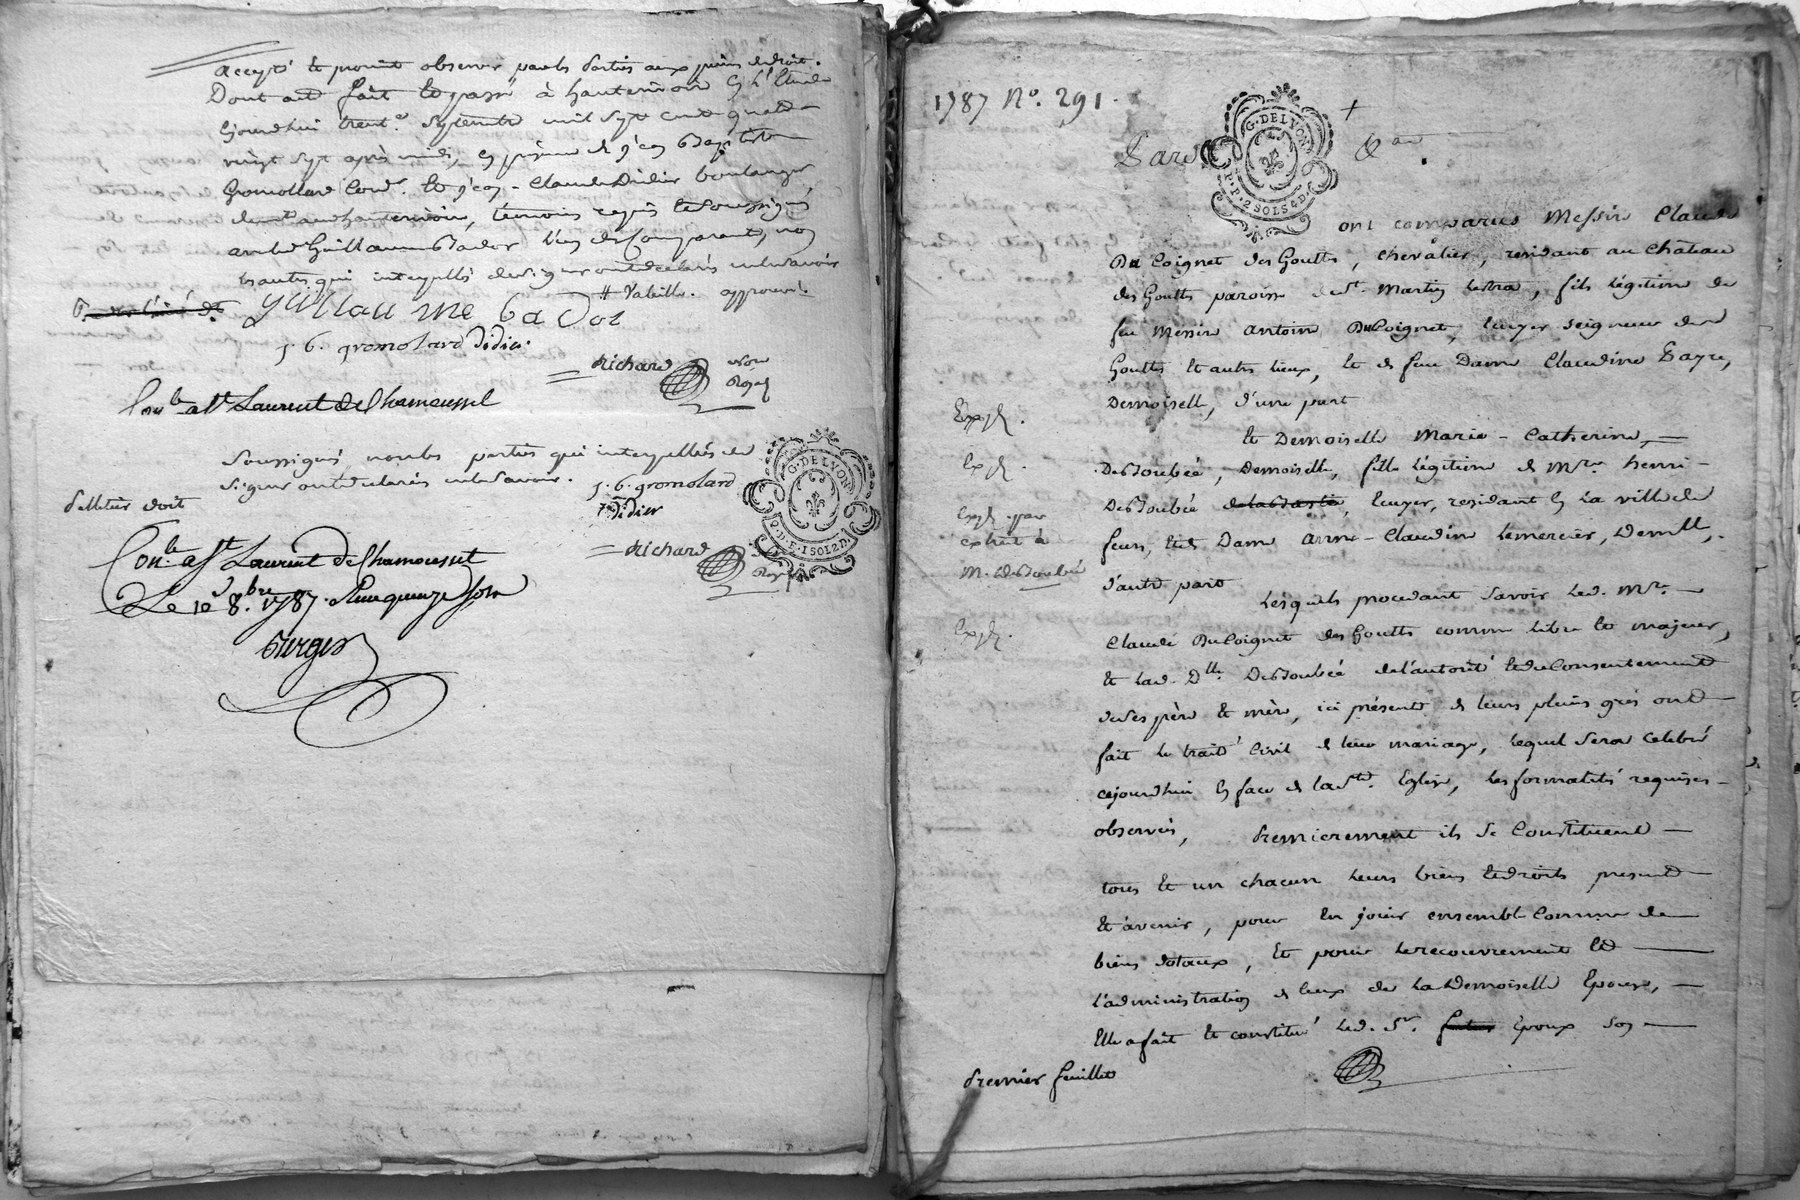 accepté et promit observer par les parties aux peines de droit.
Dont acte fait et passé à hauterivoire en l'Etude
ce jourdhui trente septembre mil sept cent quatre
vingt sept après midi, en présence de s.r jean Baptiste
Gromollard Cord.r et jean - Claude Didier boulanger,
audt hauterivoire, témoins requis et soussignés
avec led Guillaume Bador l'un des Comparants, non
les autres qui interpellés de signer ont déclarés ne le savoir
# Valeille. approuvé.
Guillau me bador
j. b. gromolard Didier.
Richard Nore
Royal
Con.le a St Laurent de Chamousset
Soussignés non les parties qui interpellés de
signer ont déclarés ne le savoir. j. b. gromolard
Didier
Pelletier doit
Richard
G. DE LYON
P. D. F. 1 SOL 2 D.
Con.le a St Laurent de Chamousset
Le 10 8.bre 1787. Reçu quinze sols
Verger
1787 No. 291.
Pard
&an
G. DE LYON
P. P. 2 SOLS 4 D.
ont comparus Messire Claude
Du Coignet des Gouttes, chevalier, résidant au Château
des Gouttes paroisse de St. Martin Lestra, fils légitime de
feu Messire antoine Du Coignet, Ecuyer seigneur des
Gouttes et autres lieux, et de feue Dame Claudine Payre,
Demoiselle, d'une part
Exp.
et Demoiselle Marie - Catherine,
Exp.
Desjoubée, Demoiselle, fille légitime de Mre. henri -
Desjoubée de la Bastie, Ecuyer, résidant en la ville de
Exp. par
extrait à
feurs, et de Dame anne - Claudine Lemercier, Demlle,
M. Desjoubée
d'autre part
Lesquels procedant savoir led. Mre.
Exp.
Claude Du Coignet des Gouttes comme libre et majeur,
et lad. Dlle. Desjoubée de l'autorité et du Consentement
de ses père et mère, ici présents de leurs pleins grés ont
fait le traité civil de leur mariage, lequel sera célébré
cejourdhui en face de la Ste. Eglise, les formalités requises -
observées, Premierement ils se Constituent
tous et un chacun leurs biens et droits présents
et àvenir, pour en jouir ensemble Comme de
biens dotaux, et pour le recouvrement et
l'administration de ceux de la Demoiselle Epouse,
Elle a fait et constitué led. Sr. futur Epoux son
Premier feuillet